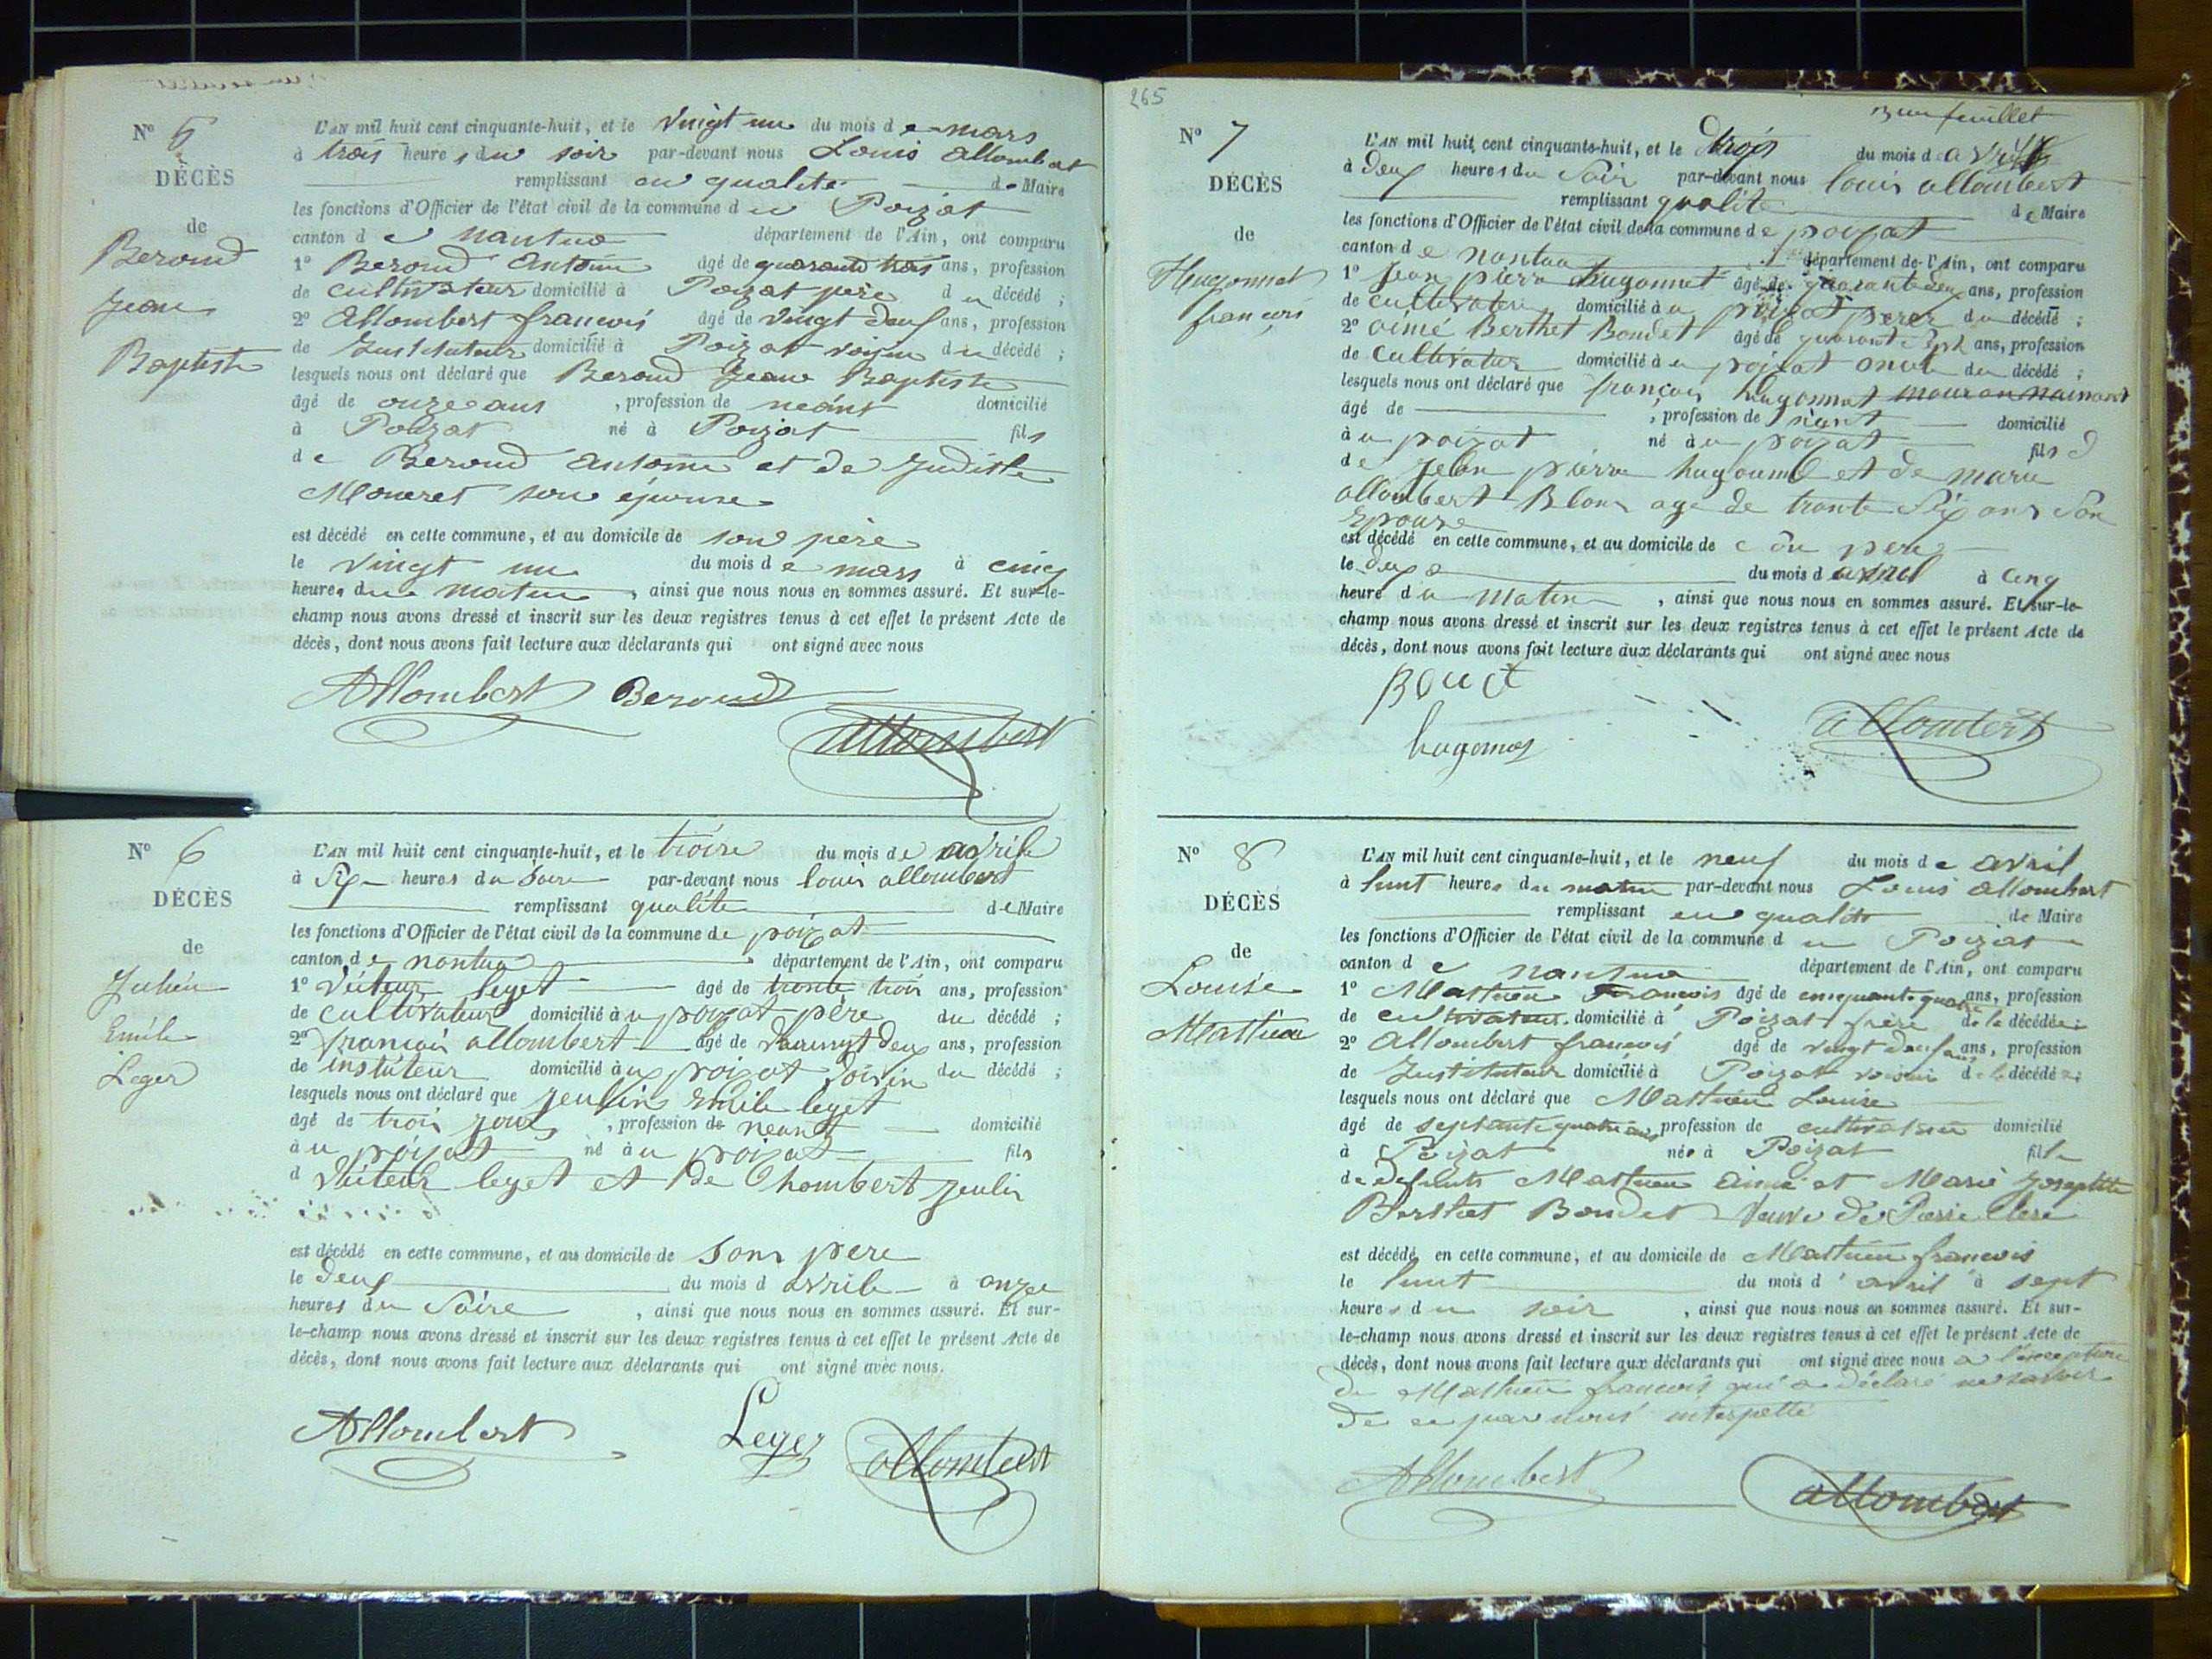 N° 5
DÉCÈS
de
Beroud
Jean
Baptiste
L'AN mil huit cent cinquante-huit, et le vingt un du mois de mars
à trois heures du soir par-devant nous Louis Allombert
remplissant en qualité de Maire
les fonctions d'Officier de l'état civil de la commune du Poizat
canton de nantua département de l'Ain, ont comparu
1° Beroud Antoine âgé de quarante trois ans, profession
de cultivateur domicilié à Poizat père du décédé ;
2° Allombert francois âgé de vingt deux ans, profession
de Instituteur domicilié à Poizat voisin du décédé ;
lesquels nous ont déclaré que Beroud Jean Baptiste
âgé de onze ans , profession de néant domicilié
à Poizat né à Poizat fils
de Beroud antoine et de Judithe
Moneret son épouse
est décédé en cette commune, et au domicile de son père
le vingt un du mois de mars à cinq
heures du matin , ainsi que nous nous en sommes assuré. Et sur-le-
champ nous avons dressé et inscrit sur les deux registres tenus à cet effet le présent Acte de
décès, dont nous avons fait lecture aux déclarants qui ont signé avec nous
Allombert Beroud
allombert
N° 6
DÉCÈS
de
Julien
Emile
Leger
L'AN mil huit cent cinquante-huit, et le troire du mois de avrile
à Six heures du Soire par-devant nous louis allombert
remplissant qualite de Maire
les fonctions d'Officier de l'état civil de la commune de poizat
canton de nantua département de l'Ain, ont comparu
1° Victeur leget âgé de trente trois ans, profession
de cultivateur domicilié au poizat père du décédé ;
2° francois allombert âgé de deux ans, profession
de instituteur domicilié au poizat voisin du décédé ;
lesquels nous ont déclaré que Emile leget
âgé de trois jours , profession de neant domicilié
au poizat né au poizat fils
d Victeur leget et de
est décédé en cette commune, et au domicile de Son pere
le deux du mois d avrile à onze
heures du Soire , ainsi que nous nous en sommes assuré. Et sur-
le-champ nous avons dressé et inscrit sur les deux registres tenus à cet effet le présent Acte de
décès, dont nous avons fait lecture aux déclarants qui ont signé avec nous.
Allombert Leger allombert
265
3me feuillet
N° 7
DÉCÈS
de
Hugonnet
francois
L'AN mil huit cent cinquante-huit, et le trois du mois d avril
à deux heures du Soir par-devant nous louis allombert
remplissant qualite de Maire
les fonctions d'Officier de l'état civil de la commune de poizat
canton de nantua département de l'Ain, ont comparu
1° Jean pierre hugonnet âgé de quarante deux ans, profession
de cultivateur domicilié au poizat perer du décédé ;
2° aimé Berthet Bondet âgé de quarante Sept ans, profession
de cultivatur domicilié au poizat oncle du décédé ;
lesquels nous ont déclaré que françois hugonnet
âgé de , profession de néant domicilié
à u poizat né au poizat fils
de Jean pierre hugonnet et de marie
allombert Blonc age de trante Six ans Son
Epouse
est décédé en cette commune, et au domicile de père
le deux du mois d avril à cinq
heure du matin , ainsi que nous nous en sommes assuré. Et sur-le-
champ nous avons dressé et inscrit sur les deux registres tenus à cet effet le présent Acte de
décès, dont nous avons fait lecture aux déclarants qui ont signé avec nous
allombert
N° 8
DÉCÈS
de
Louise
Mathieu
L'AN mil huit cent cinquante-huit, et le neuf du mois de avril
à huit heures du matin par-devant nous Louis Allombert
remplissant en qualité de Maire
les fonctions d'Officier de l'état civil de la commune du Poizat
canton de nantua département de l'Ain, ont comparu
1° Mathieu Francois âgé de cinquante quatre ans, profession
de cultivateur domicilié à Poizat frère de la décédée ;
2° Allombert francois âgé de vingt deux ans ans, profession
de Instituteur domicilié à Poizat voisin de la décédée ;
lesquels nous ont déclaré que Mathieu Louise
âgé de septante quatre ans profession de domicilié
à Poizat née à Poizat fille
de defunts Mathieu aimé et Marie Josephte
Berthet Bondet veuve de Pierre Clerc
est décédé en cette commune, et au domicile de Mathieu francois
le huit du mois d'avril à sept
heures du soir , ainsi que nous nous en sommes assuré. Et sur-
le-champ nous avons dressé et inscrit sur les deux registres tenus à cet effet le présent Acte de
décès, dont nous avons fait lecture aux déclarants qui ont signé avec nous a
de Mathieu francois qui a déclaré ne savoir
de ce par nous interpellé
Allombert allombert